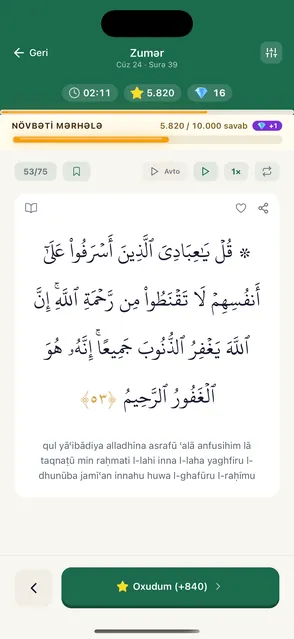 Geri
Zumər
Cüz 24 · Surə 39
02:11
5.820
16
NÖVBƏTİ MƏRHƏLƏ
5.820 / 10.000 savab
+1
53/75
Avto
1×
۞ قُلْ يَـٰعِبَادِىَ ٱلَّذِينَ أَسْرَفُوا۟ عَلَىٰٓ
أَنفُسِهِمْ لَا تَقْنَطُوا۟ مِن رَّحْمَةِ ٱللَّهِ ۚ إِنَّ
ٱللَّهَ يَغْفِرُ ٱلذُّنُوبَ جَمِيعًا ۚ إِنَّهُۥ هُوَ
ٱلْغَفُورُ ٱلرَّحِيمُ ﴿٥٣﴾
qul yāʿibādiya alladhīna asrafū ʿalā anfusihim lā
taqnaṭū min raḥmati l-lahi inna l-laha yaghfiru l-
dhunūba jamīʿan innahu huwa l-ghafūru l-raḥīmu
Oxudum (+840)